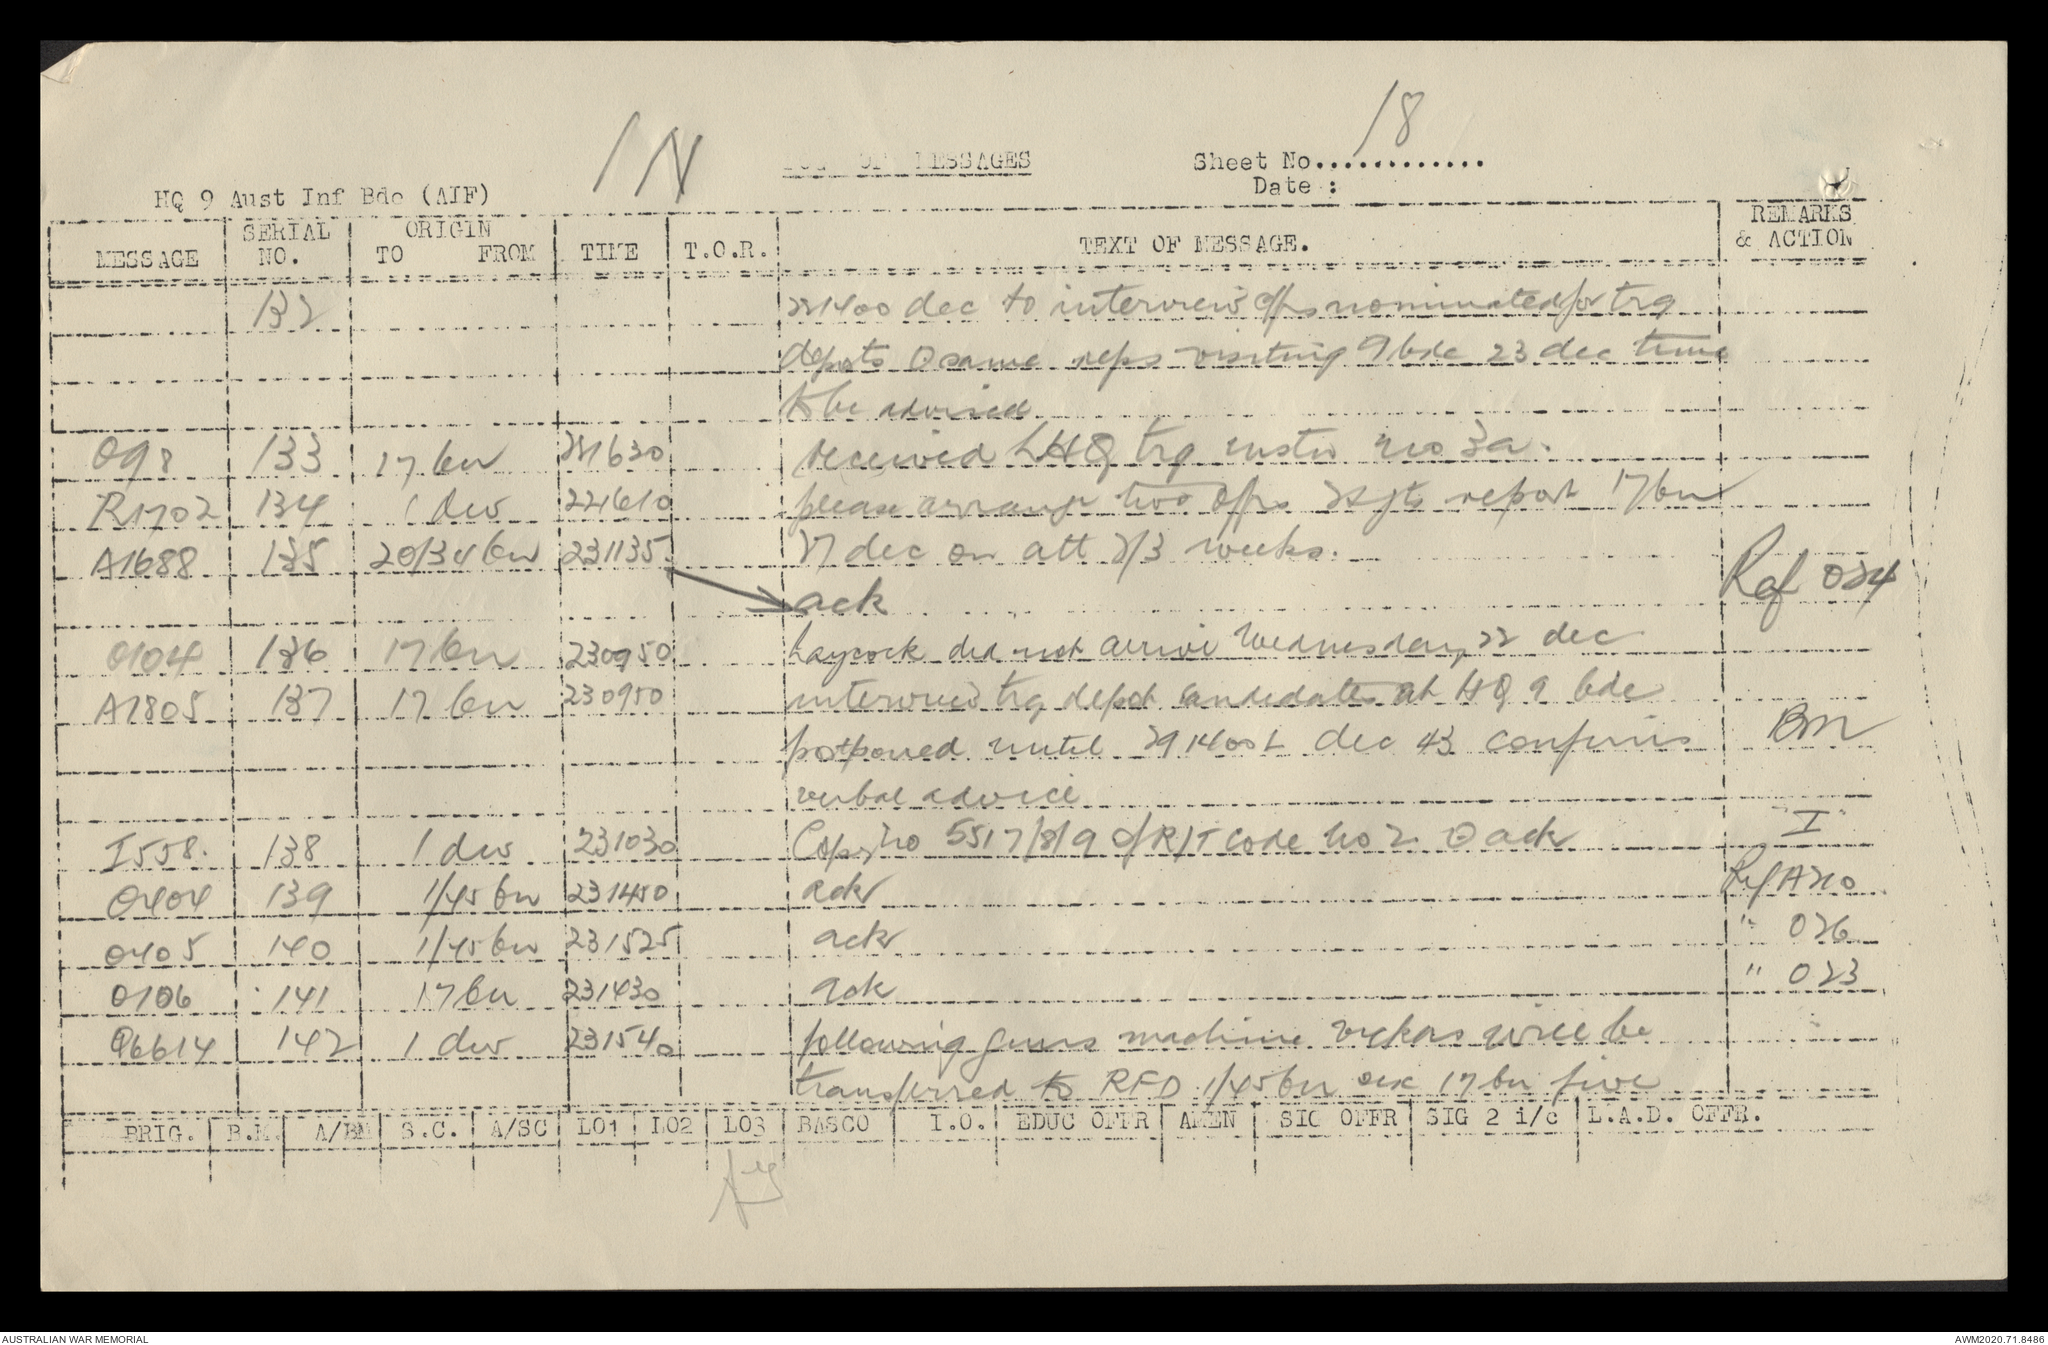 18
IN
LOG OF MESSAGES
Sheet No............
Date :
HQ 9 Aust Inf Bde (AIF)
MESSAGE SERIAL NO. ORIGIN TO FROM TIME T.O.R. TEXT OF MESSAGE. REMARKS & ACTION
132 221400 dec to interview offrs nominated for trg
depots O same reps visiting 9 bde 23 dec time
to be advised
O98 133 17 bn 221630 received LHQ trg instn no 3a.
R1702 134 1 div 221610 please arrange two offrs 2 sjts report 17 bn
A1688 135 20/34 bn 231135 27 dec on att 2/3 weeks.
ack Ref O24
O104 136 17 bn 230950 Laycock did not arrive Wednesday 22 dec
A1805 137 17 bn 230950 interview trg depot candidates at HQ 9 bde
postponed until 291400L dec 43 confirms BM
verbal advice
I558. 138 1 div 231030 Copy no 5517/8/9 of R/T Code No 2 O ack "I"
O404 139 1/45 bn 231450 ack Ref A210
O405 140 1/45 bn 231525 ack " O26
O106 141 17 bn 231430 ack " O23
Q6614 142 1 div 231540 following guns machine vickers will be
transferred to RFD 1/45 bn six 17 bn five
BRIG. B.M. A/BM S.C. A/SC LO1 LO2 LO3 BASCO I.O. EDUC OFFR AMEN SIG OFFR SIG 2 i/c L.A.D. OFFR.
AUSTRALIAN WAR MEMORIAL
AWM2020.71.8486